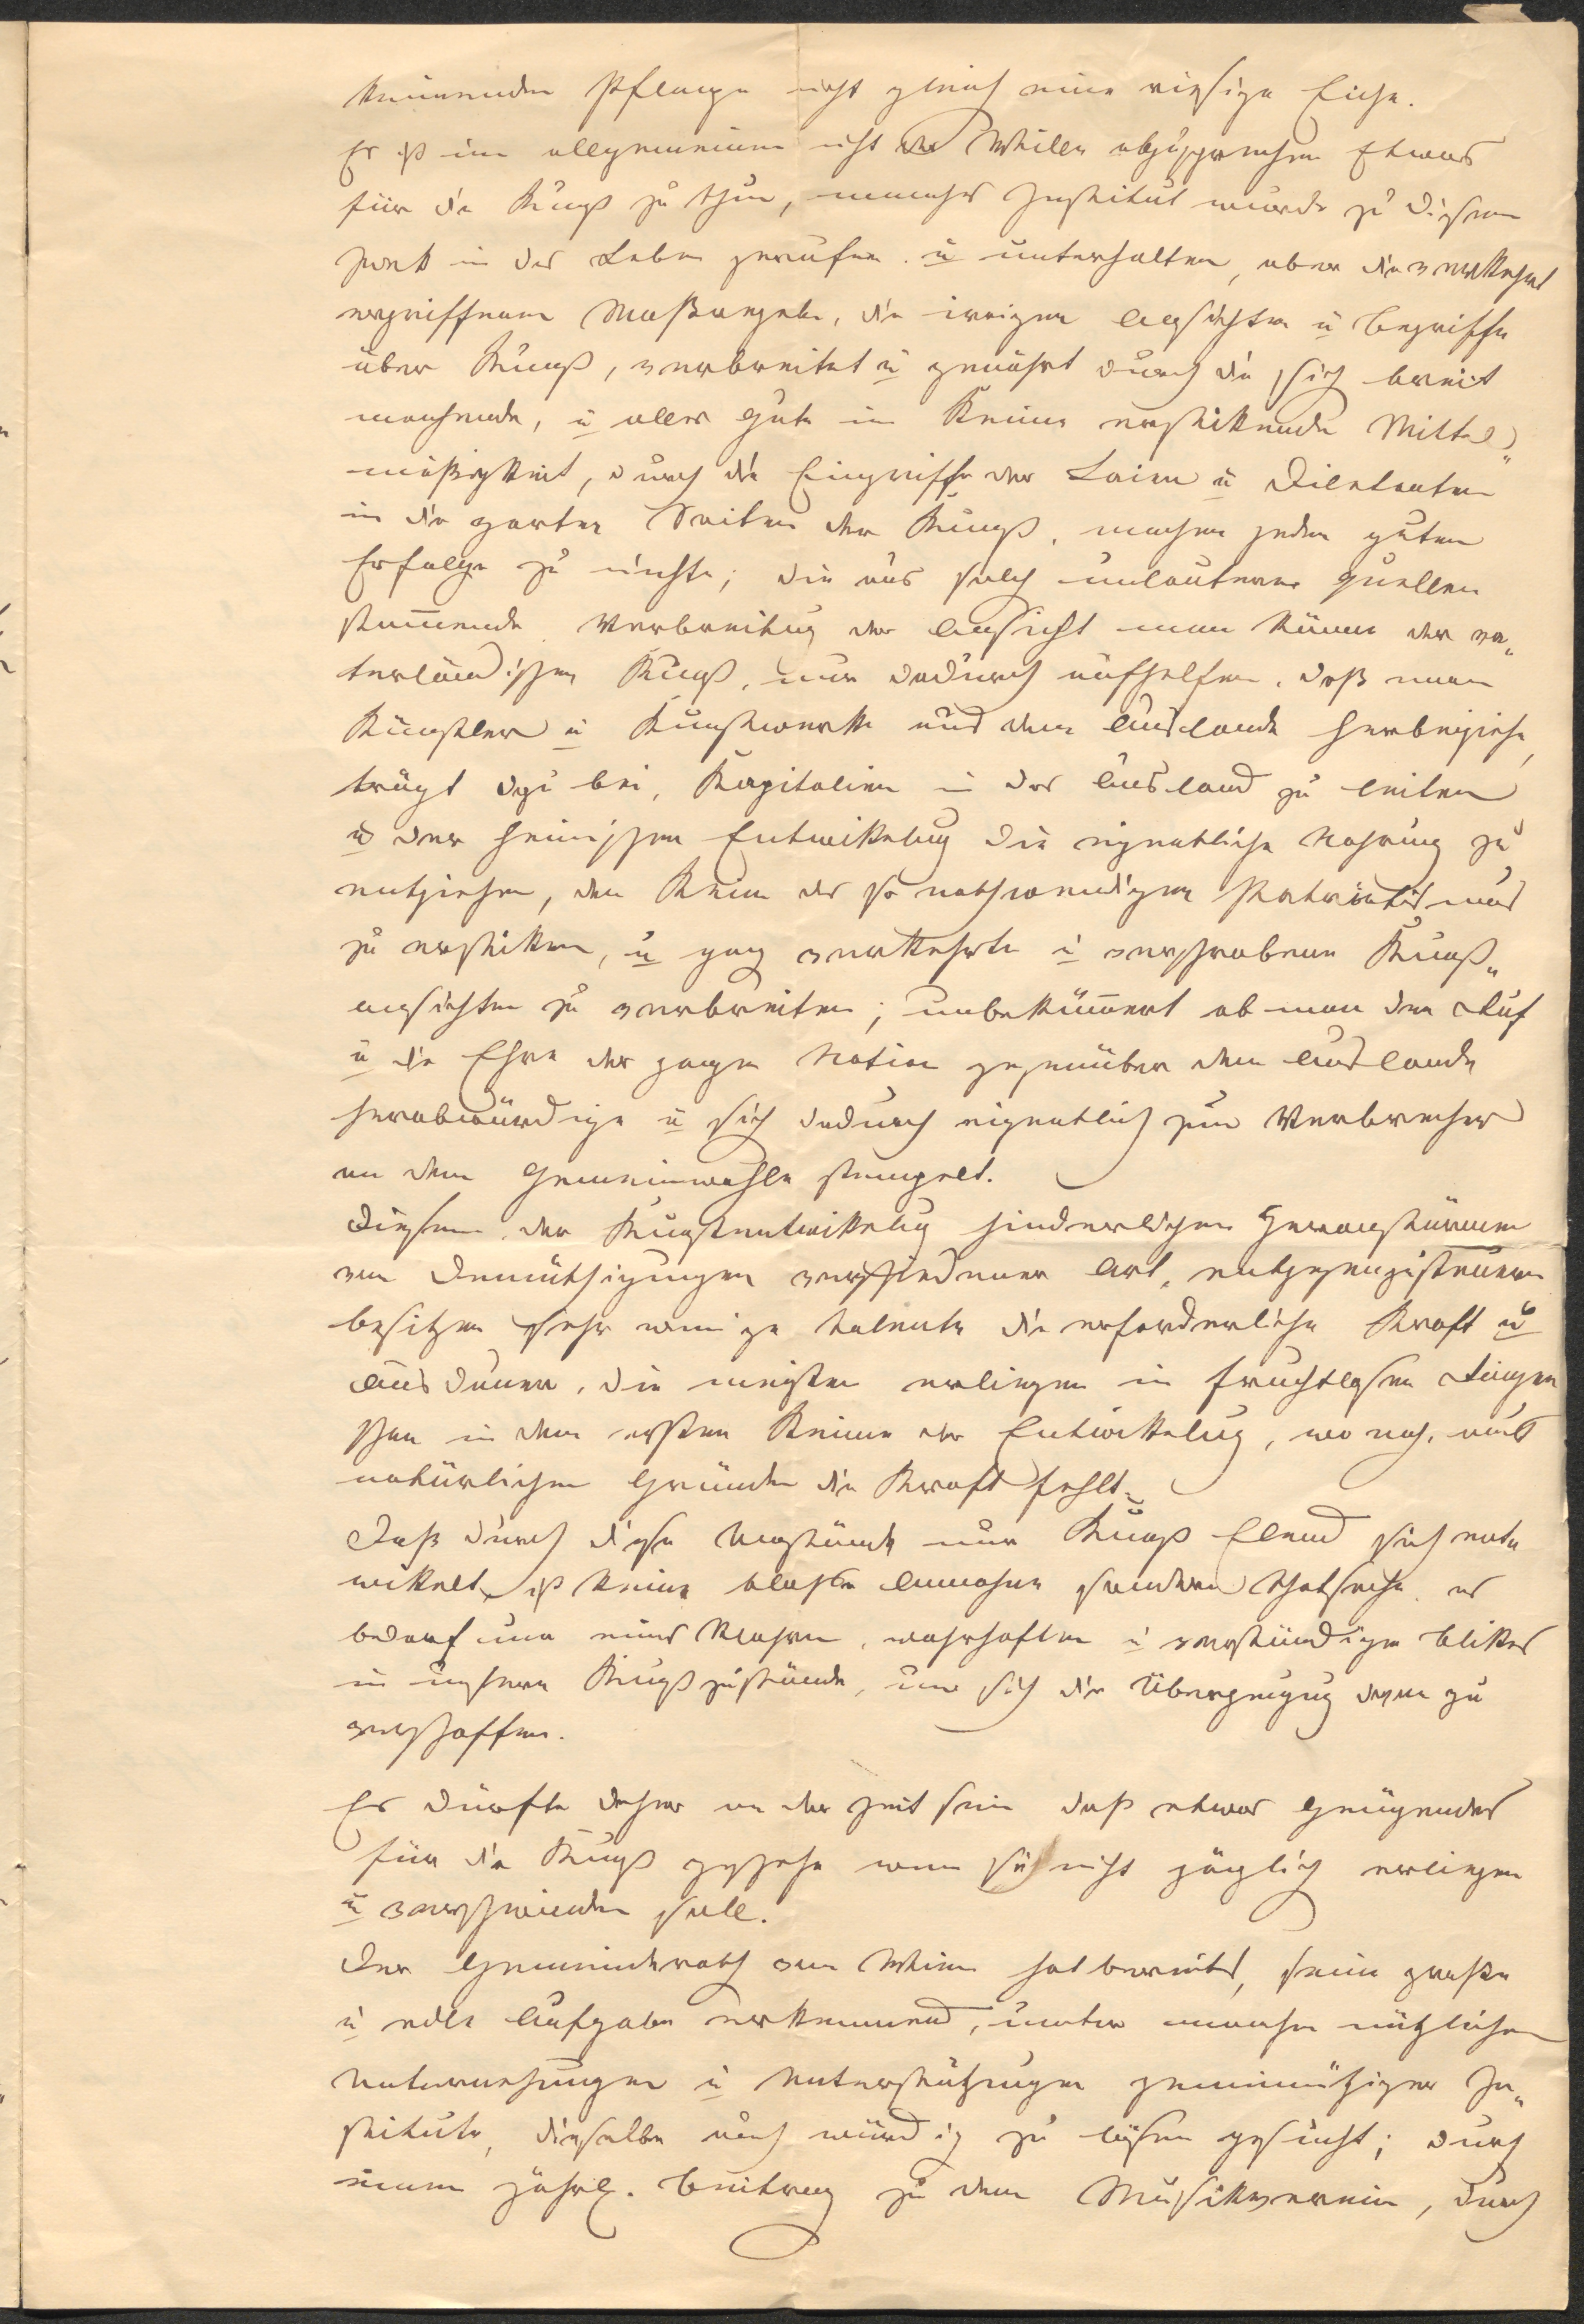 keimenden Pflanze nicht gleich eine riesige Eiche.
Es ist im allgemeinen nicht der Wille abzusprechen Etwas
für die Kunst zu thun, manches Institut wurde zu diesem
Zwek in das Leben gerufen u unterhalten, aber die verkehrt
ergriffenen Maßregeln, die irrigen Ansichten u Begriffe
über Kunst, verbreitet u genährt durch die sich breit
machende, u alles Gute im Keime erstikende Mittel„
mäßigkeit, durch die Eingriffe der Laien u Diletanten
in die zarten Saiten der Kunst, machen jeden guten
Erfolge zu nichte; die aus solch unlauteren Quellen
stam̅ende Verbreitung der Ansicht man könne der va„
terländischen Kunst, nur dadurch aufhelfen, daß man
Künstler u Kunstwerke aus dem Auslande herbeiziehe,
trägt dazu bei, Kapitalien in das Ausland zu leiten
u der heimischen Entwikelung die eigentliche Nahrung zu
entziehen, den Keim des so nothwendigen Patriotismus
zu erstiken, u ganz verkehrte u verschrobene Kunst„
ansichten zu verbreiten; unbeküm̅ert ob man den Ruf
u die Ehre der ganzen Nation gegenüber dem Auslande
herabwürdige u sich dadurch eigentlich zum Verbrecher
an dem Gemeinwohle stempelt.
Diesem, der Kunstentwikelung hinderlichen Heranstürmen
von Demüthigungen verschiedener Art, entgegenzusteuern
besitzen sehr wenige Talente die erforderliche Kraft u
Ausdauer, die meisten erliegen in fruchtlosen Ringen
schon in dem ersten Keime der Entwikelung, wo noch aus
natürlichen Gründen die Kraft fehlt.
Daß durch diese Umstände nur Kunst Elend sich ent„
wikelt, ist keine bloße Annahme sondern Thatsache, es
bedarf nur eines klaren, wahrhaften u verständigen Blikes
in unsere Kunstzustände, um sich die Überzeugung davon zu
verschaffen.
Es dürfte daher an der Zeit sein daß etwas Genügendes
für die Kunst geschehe wenn sie nicht gänzlich erliegen
u verschwinden soll.
Der Gemeinderath von Wien hat bereits, seine große
u edle Aufgabe erkennend, unter manchen nützlichen
Unternehmungen u Unterstützungen gemeinnütziger In„
stitute, dieselbe auch würdig zu lösen gesucht; durch
einen jährl. Beitrag zu dem Musikverein, durch